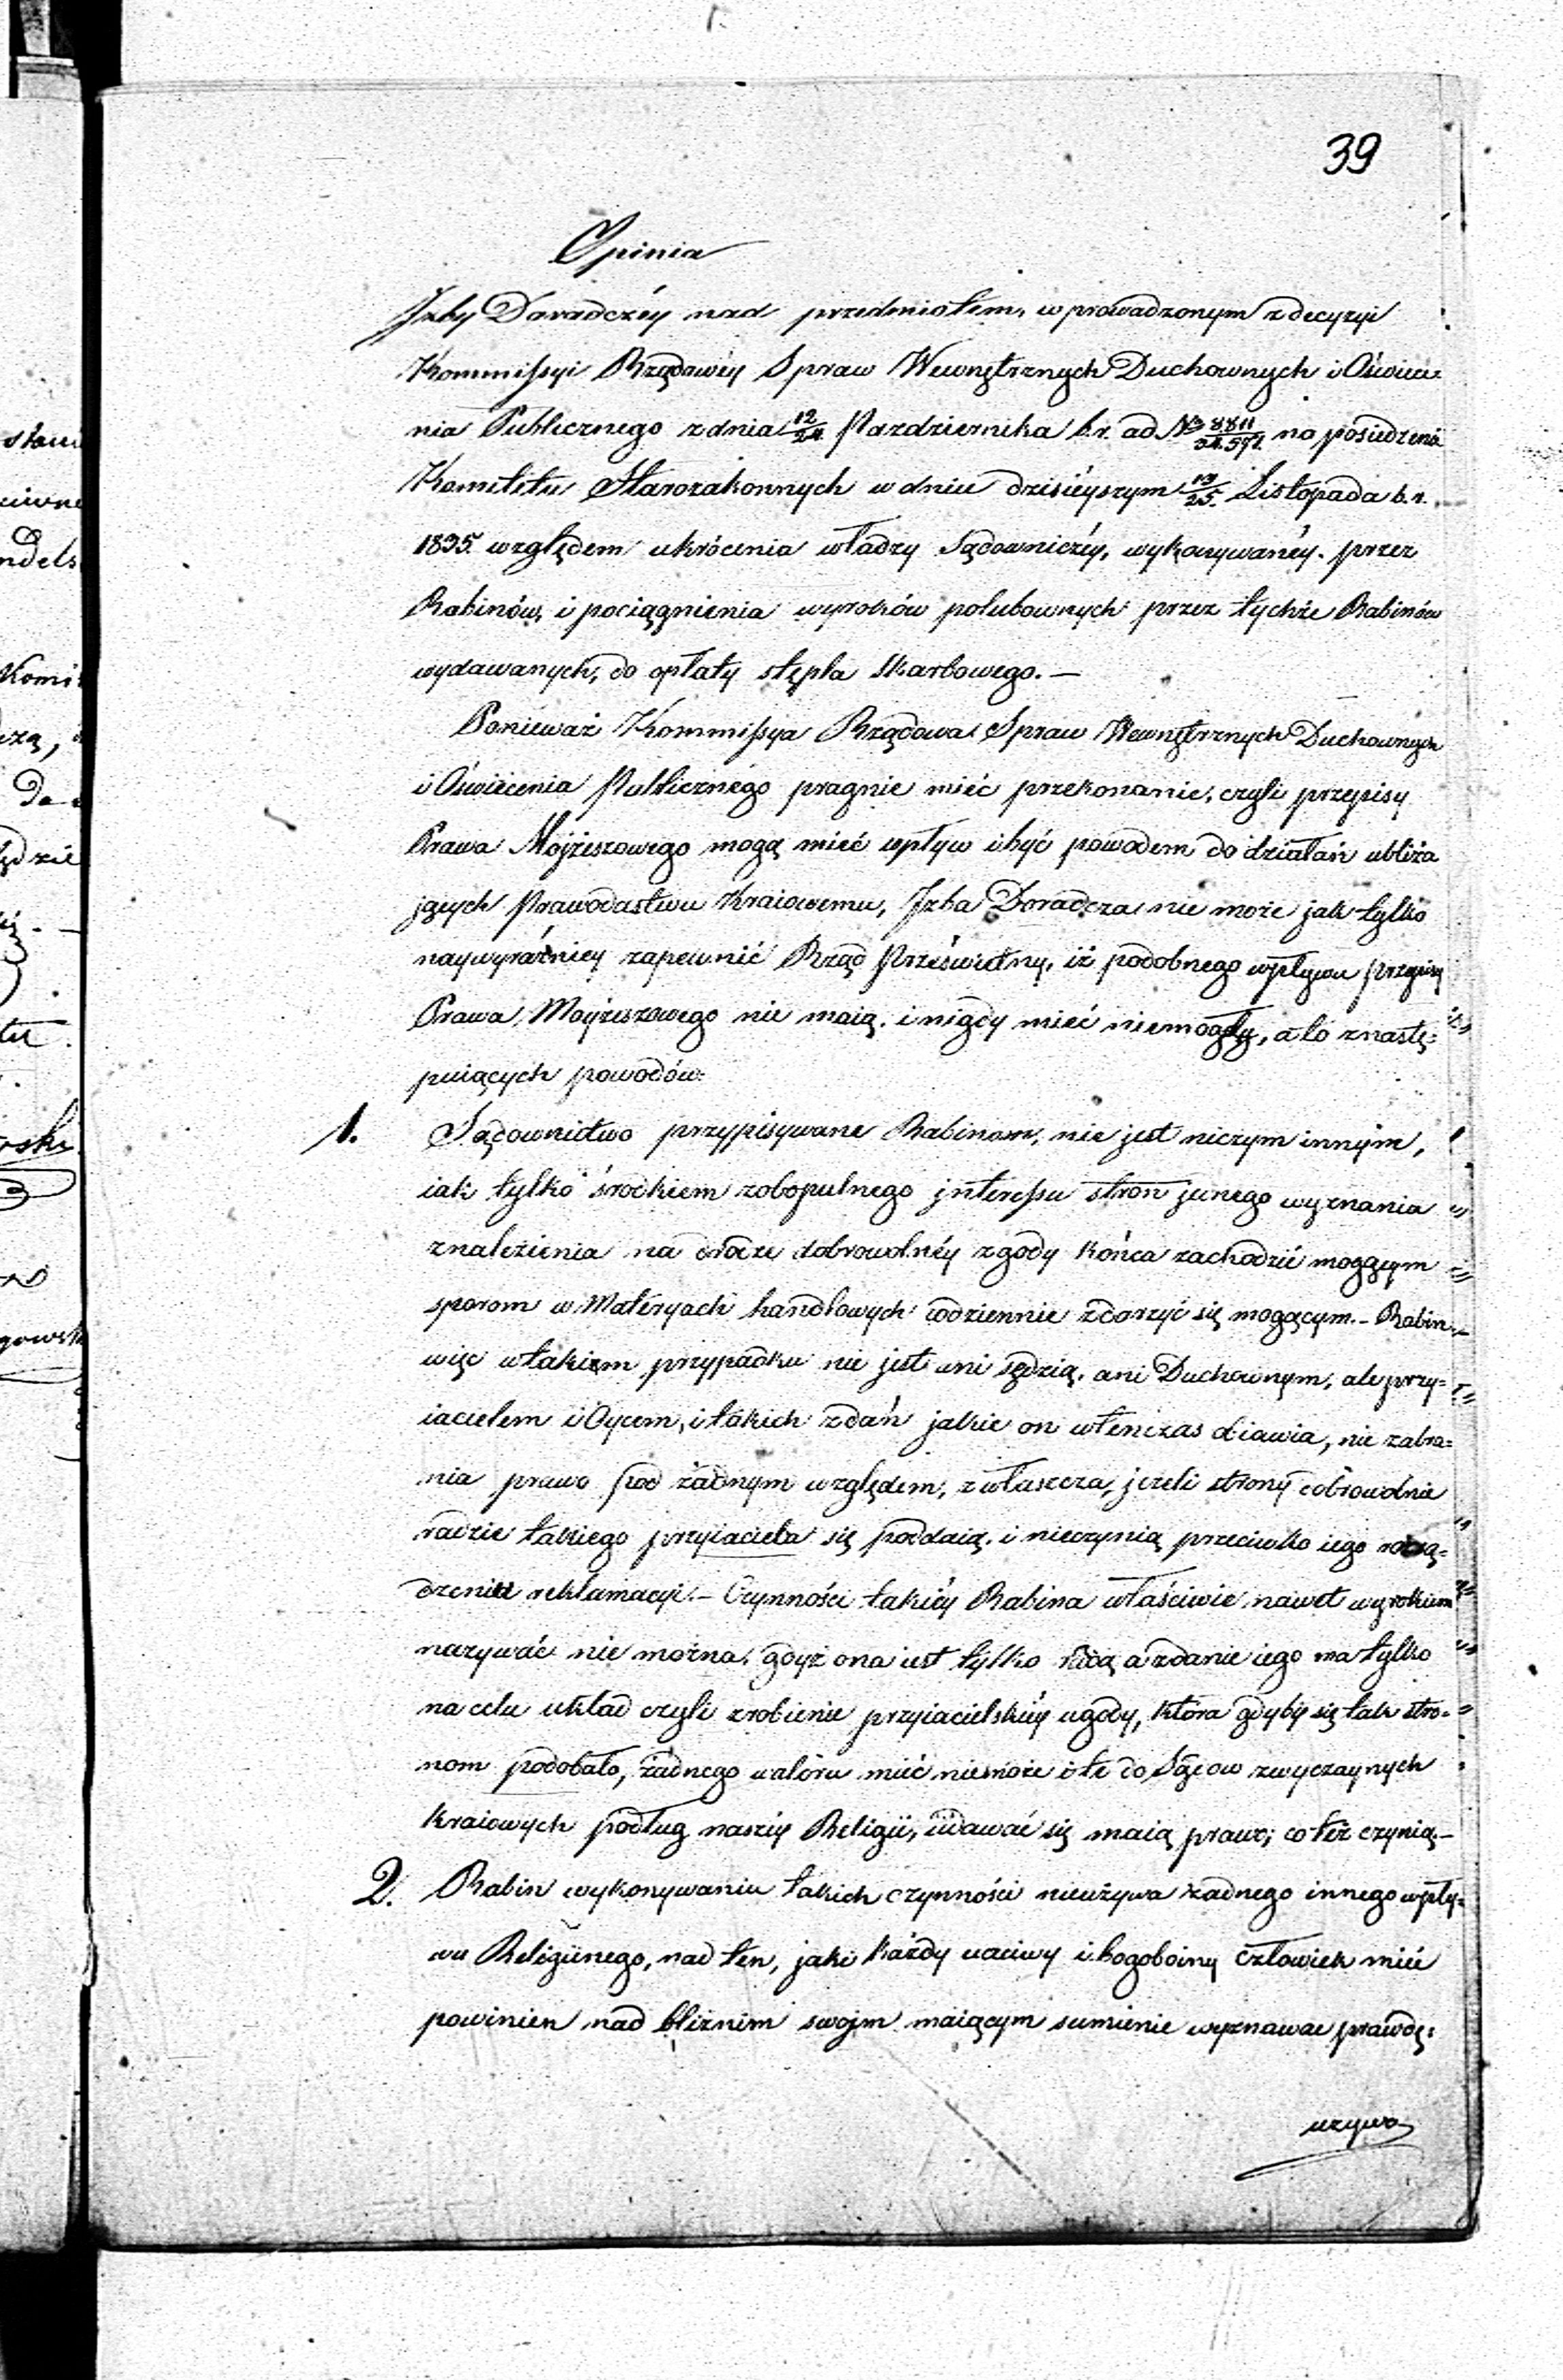 39
Opinia
Izby Doradczéy nad przedmiotem, wprowadzonym z decyzyi
Kommissyi Rządowéy Spraw Wewnętrznych Duchownych i Oświece=
nia Publicznego z dnia 12/24 Pazdziernika b.r. ad No 8811/ na posiedzenie
Komitetu Starozakonnych w dniu dzisieyszym 13/25. Listopada b.r.
1835. względem ukrócenia władzy Sądowniczéy, wykonywanéy przez
Rabinów, i pociągnienia wyroków polubownych przez tychże Rabinów
wydawanych, do opłaty stępla Skarbowego.—
Ponieważ Kommissya Rządowa Spraw Wewnętrznych Duchownych
i Oświécenia Publicznego pragnie mieć przekonanie, czyli przepisy
Prawa Mojżeszowego mogą mieć wpływ i być powodem do działań ubliża
jących Prawodastwu Kraiowemu, Izba Doradcza nie może jak tylko
naywyraźniey zapewnić Rząd Prześwietny, iż podobnego wpływu przepisy
Prawa Moyżeszowego nie maią, i nigdy mieć niemogły, a to z nastę=
puiących powodów:
1. Sądownictwo przypisywane Rabinom, nie jest niczym innym,
iak tylko środkiem zobopulnego jnteressu stron jednego wyznania
znalezienia na drodze dobrowolnéy zgody końca zachodzić mogącym
sporom w Materyach handlowych codziennie zdarzyć się mogącym.— Rabin
więc w takiem przypadku nie jest ani sędzią, ani Duchownym, ale przy=
iacielem i Oycem, i takich zdań jakie on wtenczas obiawia, nie zabra=
nia prawo pod żadnym względem, zwłaszcza, jeżeli strony dobrowolnie
radzie takiego przyiaciela się poddaią, i nieczynią przeciwko iego rozsą=
dzeniu reklamacyi.— Czynności takiéy Rabina właściwie nawet wyrokiem
nazywać nie można, gdyż ona iest tylko radą a zdanie iego ma tylko
na celu układ czyli zrobienie przyiacielskiéy ugody, która gdyby się tak stro=
nom podobało, żadnego waloru mieć niemoże i te do Sądow zwyczaynych
Kraiowych podług naszéy Religii, udawać się maią prawo, co też czynią.—
2. Rabin wykonywaniu takich czynności nieużywa żadnego innego wpły=
wu Religiinego, nad ten, jaki każdy uczciwy i bogoboiny człowiek mieć
powinien nad bliźnim swojm maiącym sumienie wyznawae prawdę:
używa